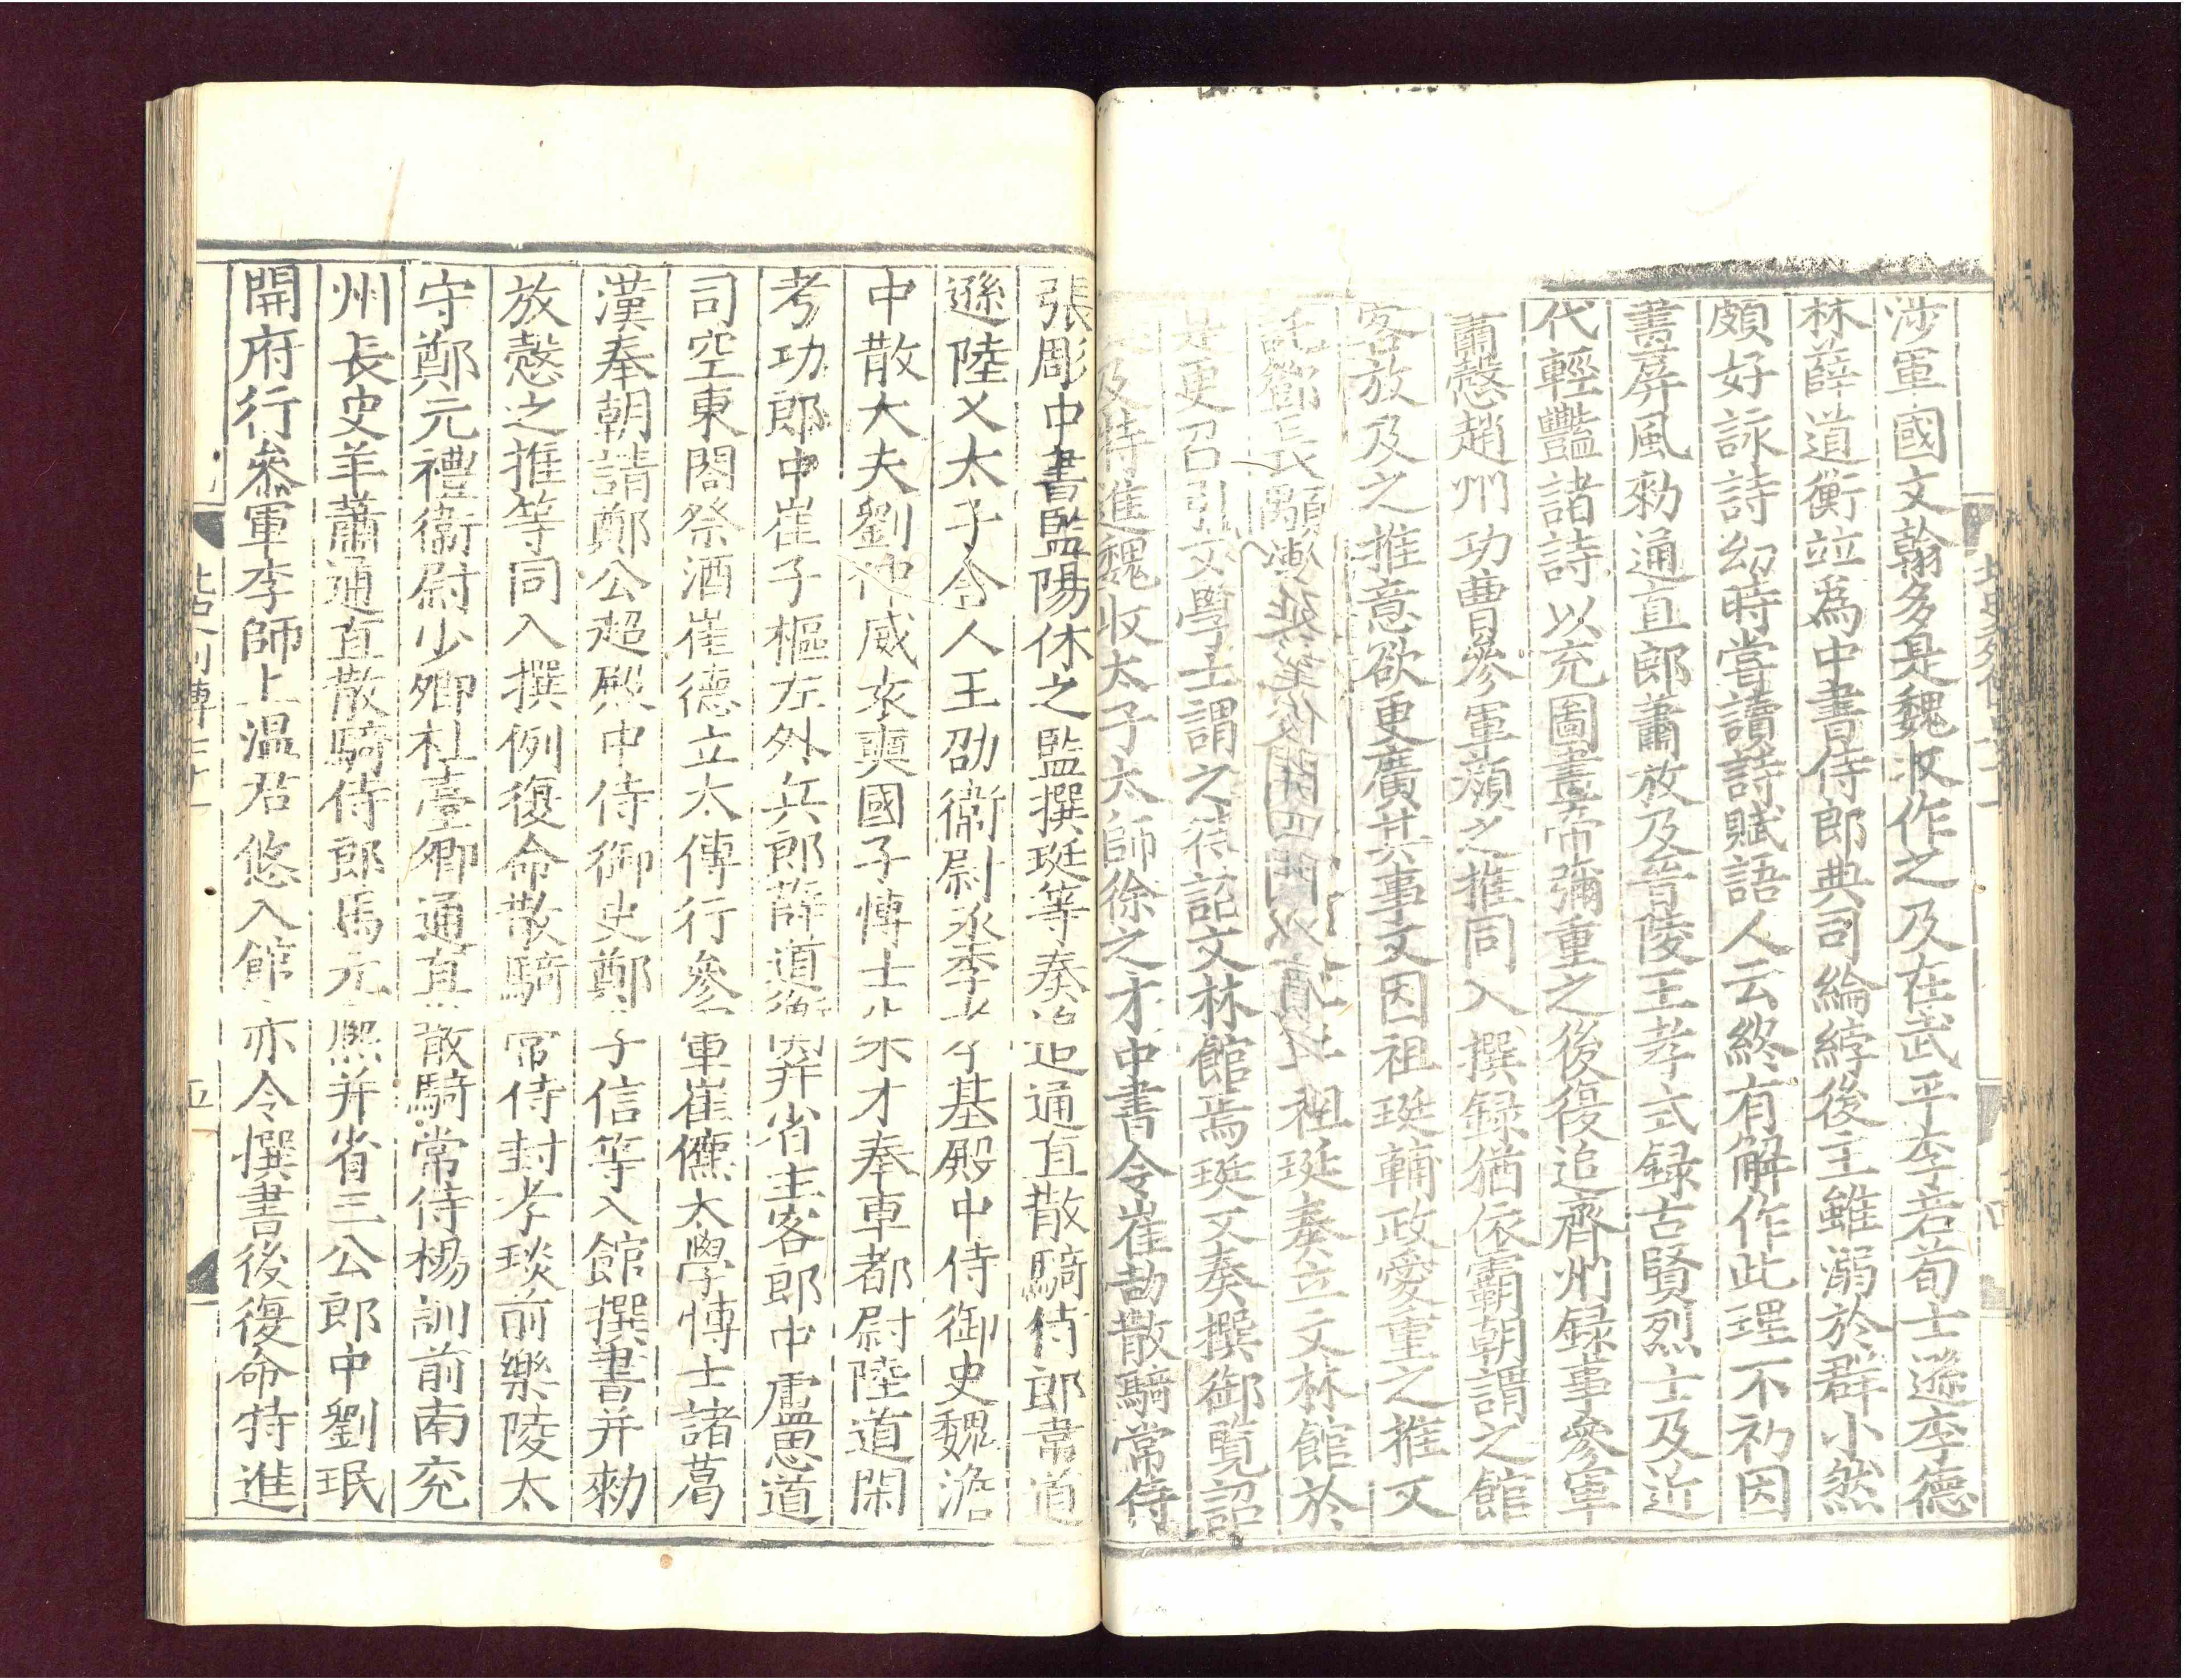 涉軍國文翰多是魏收作之及在武平李若荀士遜李德
林薛道衡竝爲中書侍郎典司綸綍後主雖溺於群小然
頗好詠詩幼時嘗讀詩賦語人云終有解作此理不初因
畫屏風勑通直郎蕭放及晉陵王孝式録古賢烈士及近
代輕豔諸詩以充圖畫帝彌重之後復追齊州録事參軍
蕭慤趙州功曹參軍顔之推同入撰録猶依霸朝謂之館
客放及之推意欲更廣其事又因祖珽輔政愛重之推又
託鄧長顒漸 年祖珽奏立文林館於
是更召引文學士謂之待詔文林館焉珽又奏撰御覽詔
及特進魏收太子太師徐之才中書令崔劼散騎常侍
張彫中書監陽休之監撰珽等奏追通直散騎侍郎韋道
遜陸乂太子舍人王劭衞尉丞李孝基殿中侍御史魏澹
中散大夫劉仲威袁奭國子博士朱才奉車都尉陸道閑
考功郎中崔子樞左外兵郎薛道衡并省主客郎中盧思道
司空東閤祭酒崔德立太傅行參軍崔儦太學博士諸葛
漢奉朝請鄭公超殿中侍御史鄭子信等入館撰書并勑
放慤之推等同入撰例復命散騎常侍封孝琰前樂陵太
守鄭元禮衞尉少卿杜臺卿通直散騎常侍楊訓前南兗
州長史羊蕭通直散騎侍郎馬元熙并省三公郎中劉珉
開府行參軍李師上温君悠入館亦令撰書後復命特進